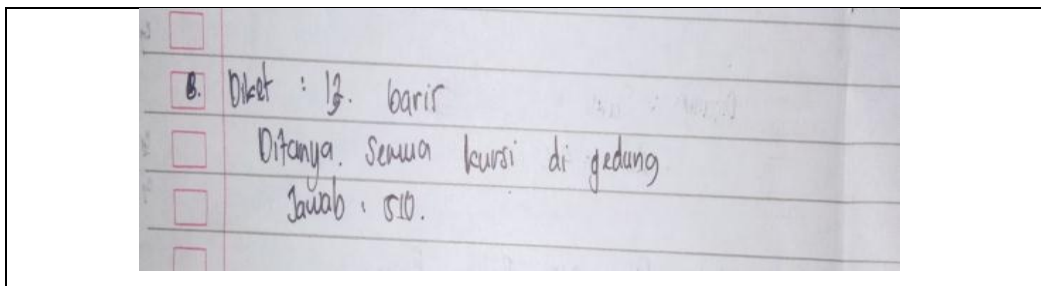 8. Diket : 12. baris
Ditanya. Semua kursi di gedung
Jawab : 510.